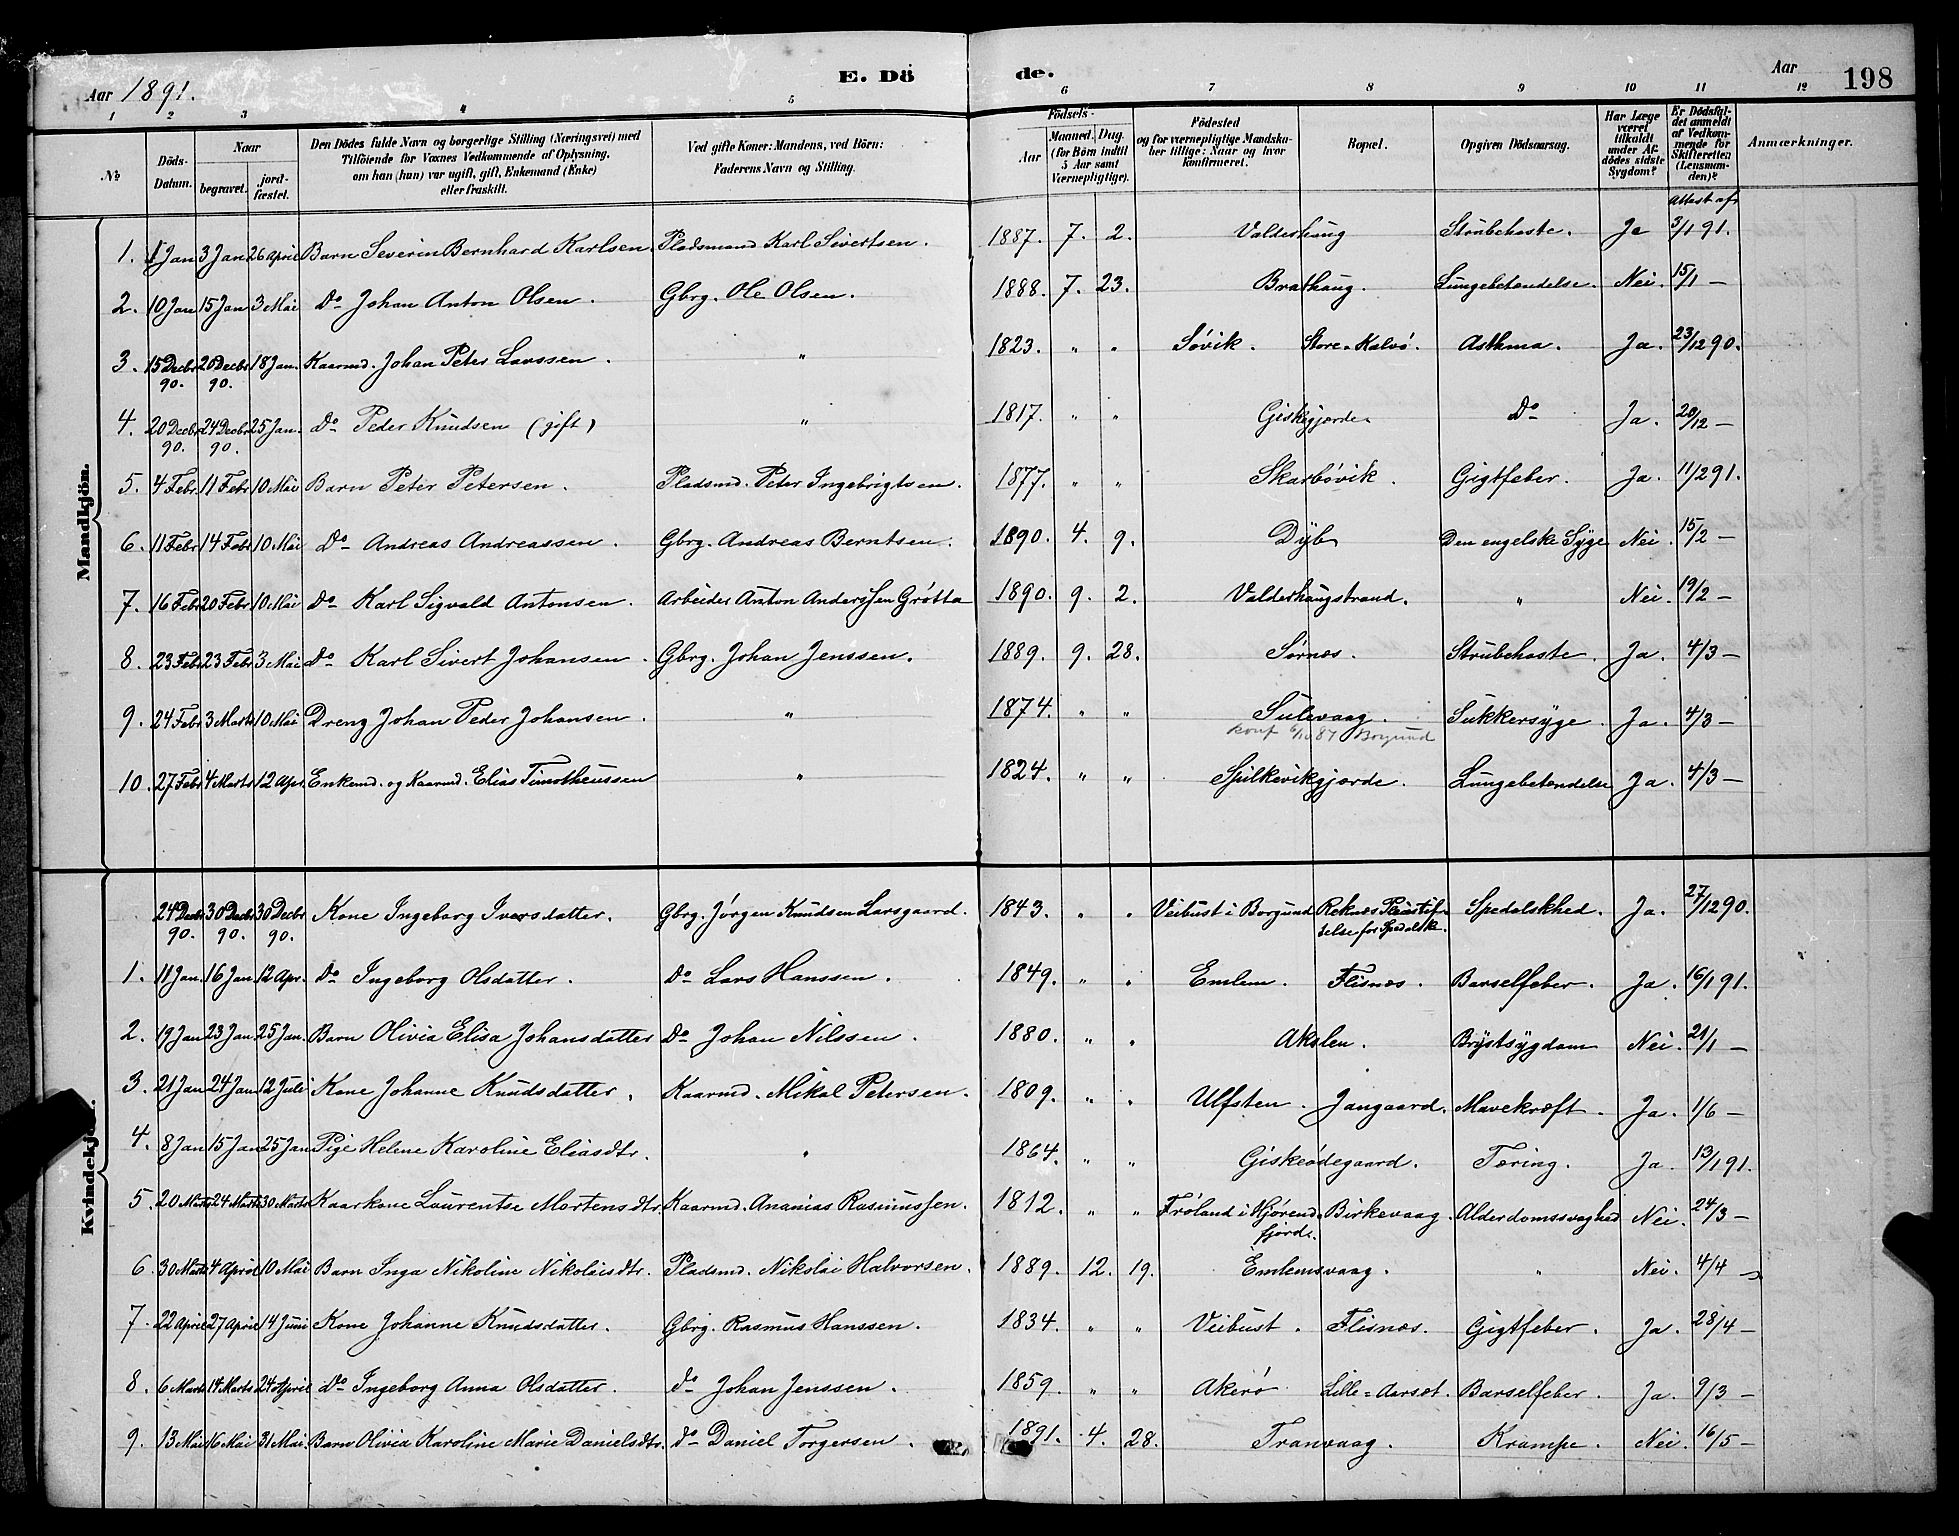 Aar 1891. E. Dö de. Aar 198
1 2 3 4 5 6 7 8 9 10 11 12
№ Döds-Datum. Naar begravet. jord-fæstet. Den Dödes fulde Navn og borgerlige Stilling (Næringsvei) med Tilföiende for Voxnes Vedkommende af Oplysning, om han (hun) var ugift, gift, Enkemand (Enke) eller fraskilt. Ved gifte Koner: Mandens, ved Börn: Faderens Navn og Stilling. Födsels- Aar Maaned. Dag. (for Börn indtil 5 Aar samt Værnepligtige). Födested og for værnepligtige Mandskaber tillige: Naar og hvor konfirmeret. Bopæl. Opgiven Dödsaarsag. Har Læge været tilkaldt under Afdödes sidste Sygdom? Er Dödsfaldet anmeldt af Vedkommende for Skifteretten (Lensmanden)? Anmærkninger.
Attest af
Mandkjön.
1. 1 Jan 3 Jan 26 April Barn Severin Bernhard Karlsen. Pladsmand Karl Sivertsen. 1887. 7. 2. Valderhaug Strubehoste. Ja 3/1 91.
2. 10 Jan 15 Jan 3 Mai Do Johan Anton Olsen. Gbrg. Ole Olsen. 1888. 7. 23. Brathaug. Lungebetendelse. Nei. 15/1 —
3. 15 Decbr 90. 20 Decbr 90. 18 Jan. Kaarmd. Johan Peter Larssen. " 1823. " " Søvik. Store-Kalvø. Asthma. Ja. 23/12 90.
4. 20 Decbr 90. 24 Decbr 90. 25 Jan. Do Peder Knudsen (gift) " 1817. " " Giskegjerde. Do Ja. 20/12 —
5. 4 Febr 11 Febr 10 Mai Barn Peter Petersen. Pladsmd. Peter Ingebrigtsen. 1877. " " Skarbøvik. Gigtfeber. Ja. 11/2 91.
6. 11 Febr 14 Febr 10 Mai Do Andreas Andreassen. Gbrg. Andreas Berntsen. 1890. 4. 9. Dyb Den engelske Syge Nei. 15/2 —
7. 16 Febr 20 Febr 10 Mai Do Karl Sigvald Antonsen. Arbeider Anton Anderssen Grøtta 1890. 9. 2. Valderhaugstrand. " Nei. 19/2 —
8. 23 Febr 23 Febr 3 Mai Do Karl Sivert Johansen. Gbrg. Johan Jenssen. 1889. 9. 28. Sørnes. Strubehoste. Ja. 4/3 —
9. 24 Febr 3 Marts 10 Mai Dreng Johan Peder Johansen. " 1874. " " Sulevaag. Sukkersyge. Ja. 4/3 —
Konf Borgund
10. 27 Febr 4 Marts 12 Apr. Enkemd. og Kaarmd. Elias Timotheussen " 1824. " " Spilkevikgjærde. Lungebetendelse Ja. 4/3 —
Kvindekjön.
24 Decbr 90. 30 Decbr 90. 30 Decbr 90. Kone Ingeborg Iversdatter. Gbrg. Jørgen Knudsen Larsgaard. 1843. " " Veibust i Borgund Reknes Pleiestiftelse for Spedalske. Spedalskhed. Ja. 27/12 90.
1. 11 Jan. 16 Jan. 12 Apr. Do Ingeborg Olsdatter. Do Lars Hanssen. 1849. " " Emlem. Flisnæs. Barselfeber. Ja. 16/1 91.
2. 19 Jan 23 Jan. 25 Jan. Barn Olivia Elisa Johansdatter Do Johan Nilssen. 1880. " " Akslen. Brystsygdom Nei. 21/1 —
3. 21 Jan 24 Jan 12 Juli Kone Johanne Knudsdatter. Kaarmd. Mikal Petersen. 1809. " " Ulfsten. Jangaard. Mavekræft. Ja. 1/6 —
4. 8 Jan 15 Jan 25 Jan Pige Helene Karoline Eliasdtr. " 1864. " " Giskeødegaard. Tæring. Ja. 13/1 91.
5. 20 Marts 24 Marts 30 Marts Kaarkone Laurentse Mortensdtr. Kaarmd. Ananias Rasmussen. 1812. " " Frøland i Hjørendfjord. Birkevaag. Alderdomssvaghed Nei. 24/3 —
6. 30 Marts 4 April 10 Mai Barn Inga Nikoline Nikolaisdtr. Pladsmd. Nikolai Halvorsen. 1889. 12. 19. Emlemsvaag. " Nei. 4/4 —
7. 22 April 27 April 14 Juni Kone Johanne Knudsdatter. Gbrg. Rasmus Hanssen. 1834. " " Veibust. Flisnæs. Gigtfeber. Ja. 28/4 —
8. 6 Marts 14 Marts 24 April Do Ingeborg Anna Olsdatter. do Johan Jenssen. 1859. " " Akerø Lille-Aarset. Barselfeber. Ja. 9/3 —
9. 13 Mai 16 Mai 31 Mai. Barn Olivia Karoline Marie Danielsdtr. do Daniel Torgersen. 1891. 4. 28. Tranvaag. Krampe. Nei. 16/5 —